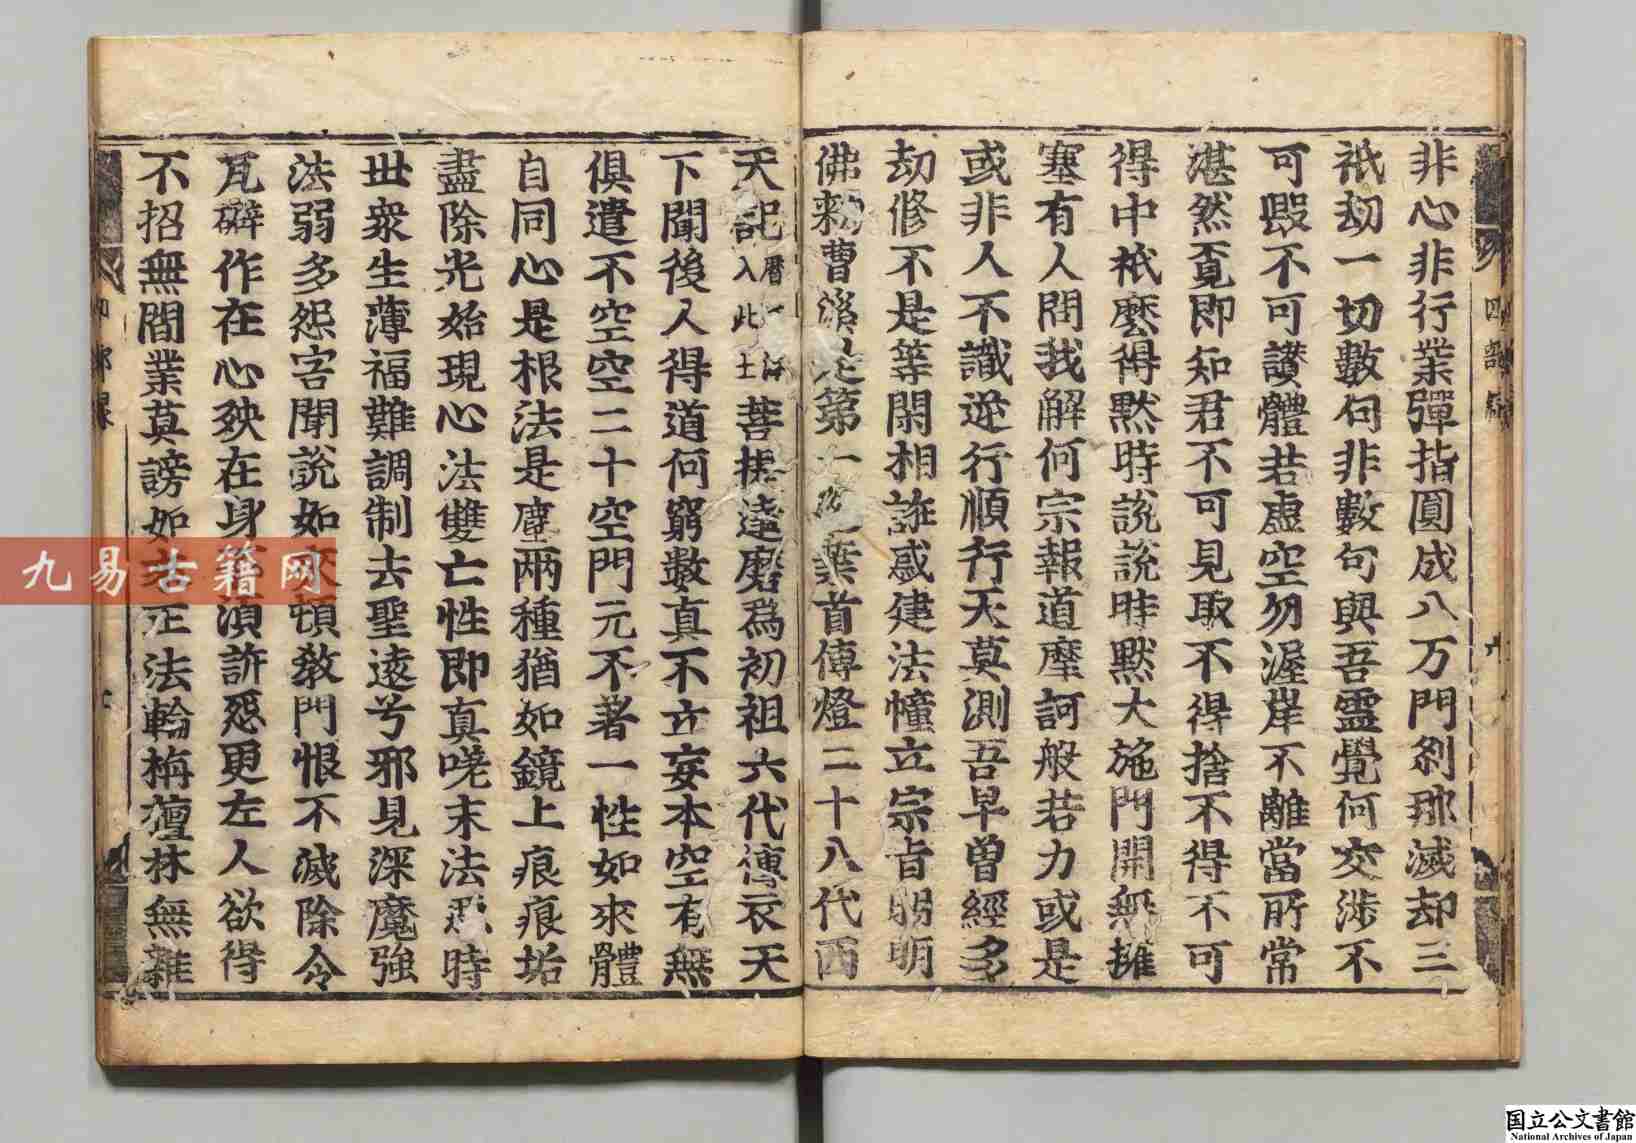 非心非行業彈指圓成八万門刹那滅却三
祇劫一切數句非數句與吾靈覺何交渉不
可毀不可讚體若虛空勿渥岸不離當所常
湛然覓即知君不可見取不得捨不得不可
得中衹麽得黙時說說時黙大施門開無擁
塞有人問我解何宗報道摩訶般若力或是
或非人不識逆行順行天莫測吾早曽經多
劫修不是等閑相誑惑建法幢立宗旨明明
佛勑曹溪是第一葉首傳燈二十八代西
天記入此土菩提達磨爲初祖六代傳衣天
下聞後人得道何窮數真不立妄本空有無
俱遣不空空二十空門元不著一性如來體
自同心是根法是塵兩種猶如鏡上痕痕垢
盡除光始現心法雙亡性即真嗟末法惡時
丗衆生薄福難調制去聖遠兮邪見深魔強
法弱多怨害聞說如來頓教門恨不滅除令
瓦礔作在心殃在身須訴怨更左人欲得
不招無間業莫謗如來正法輪栴檀林無雜
四部録
九易古籍网
国立公文書館
National Archives of Japan